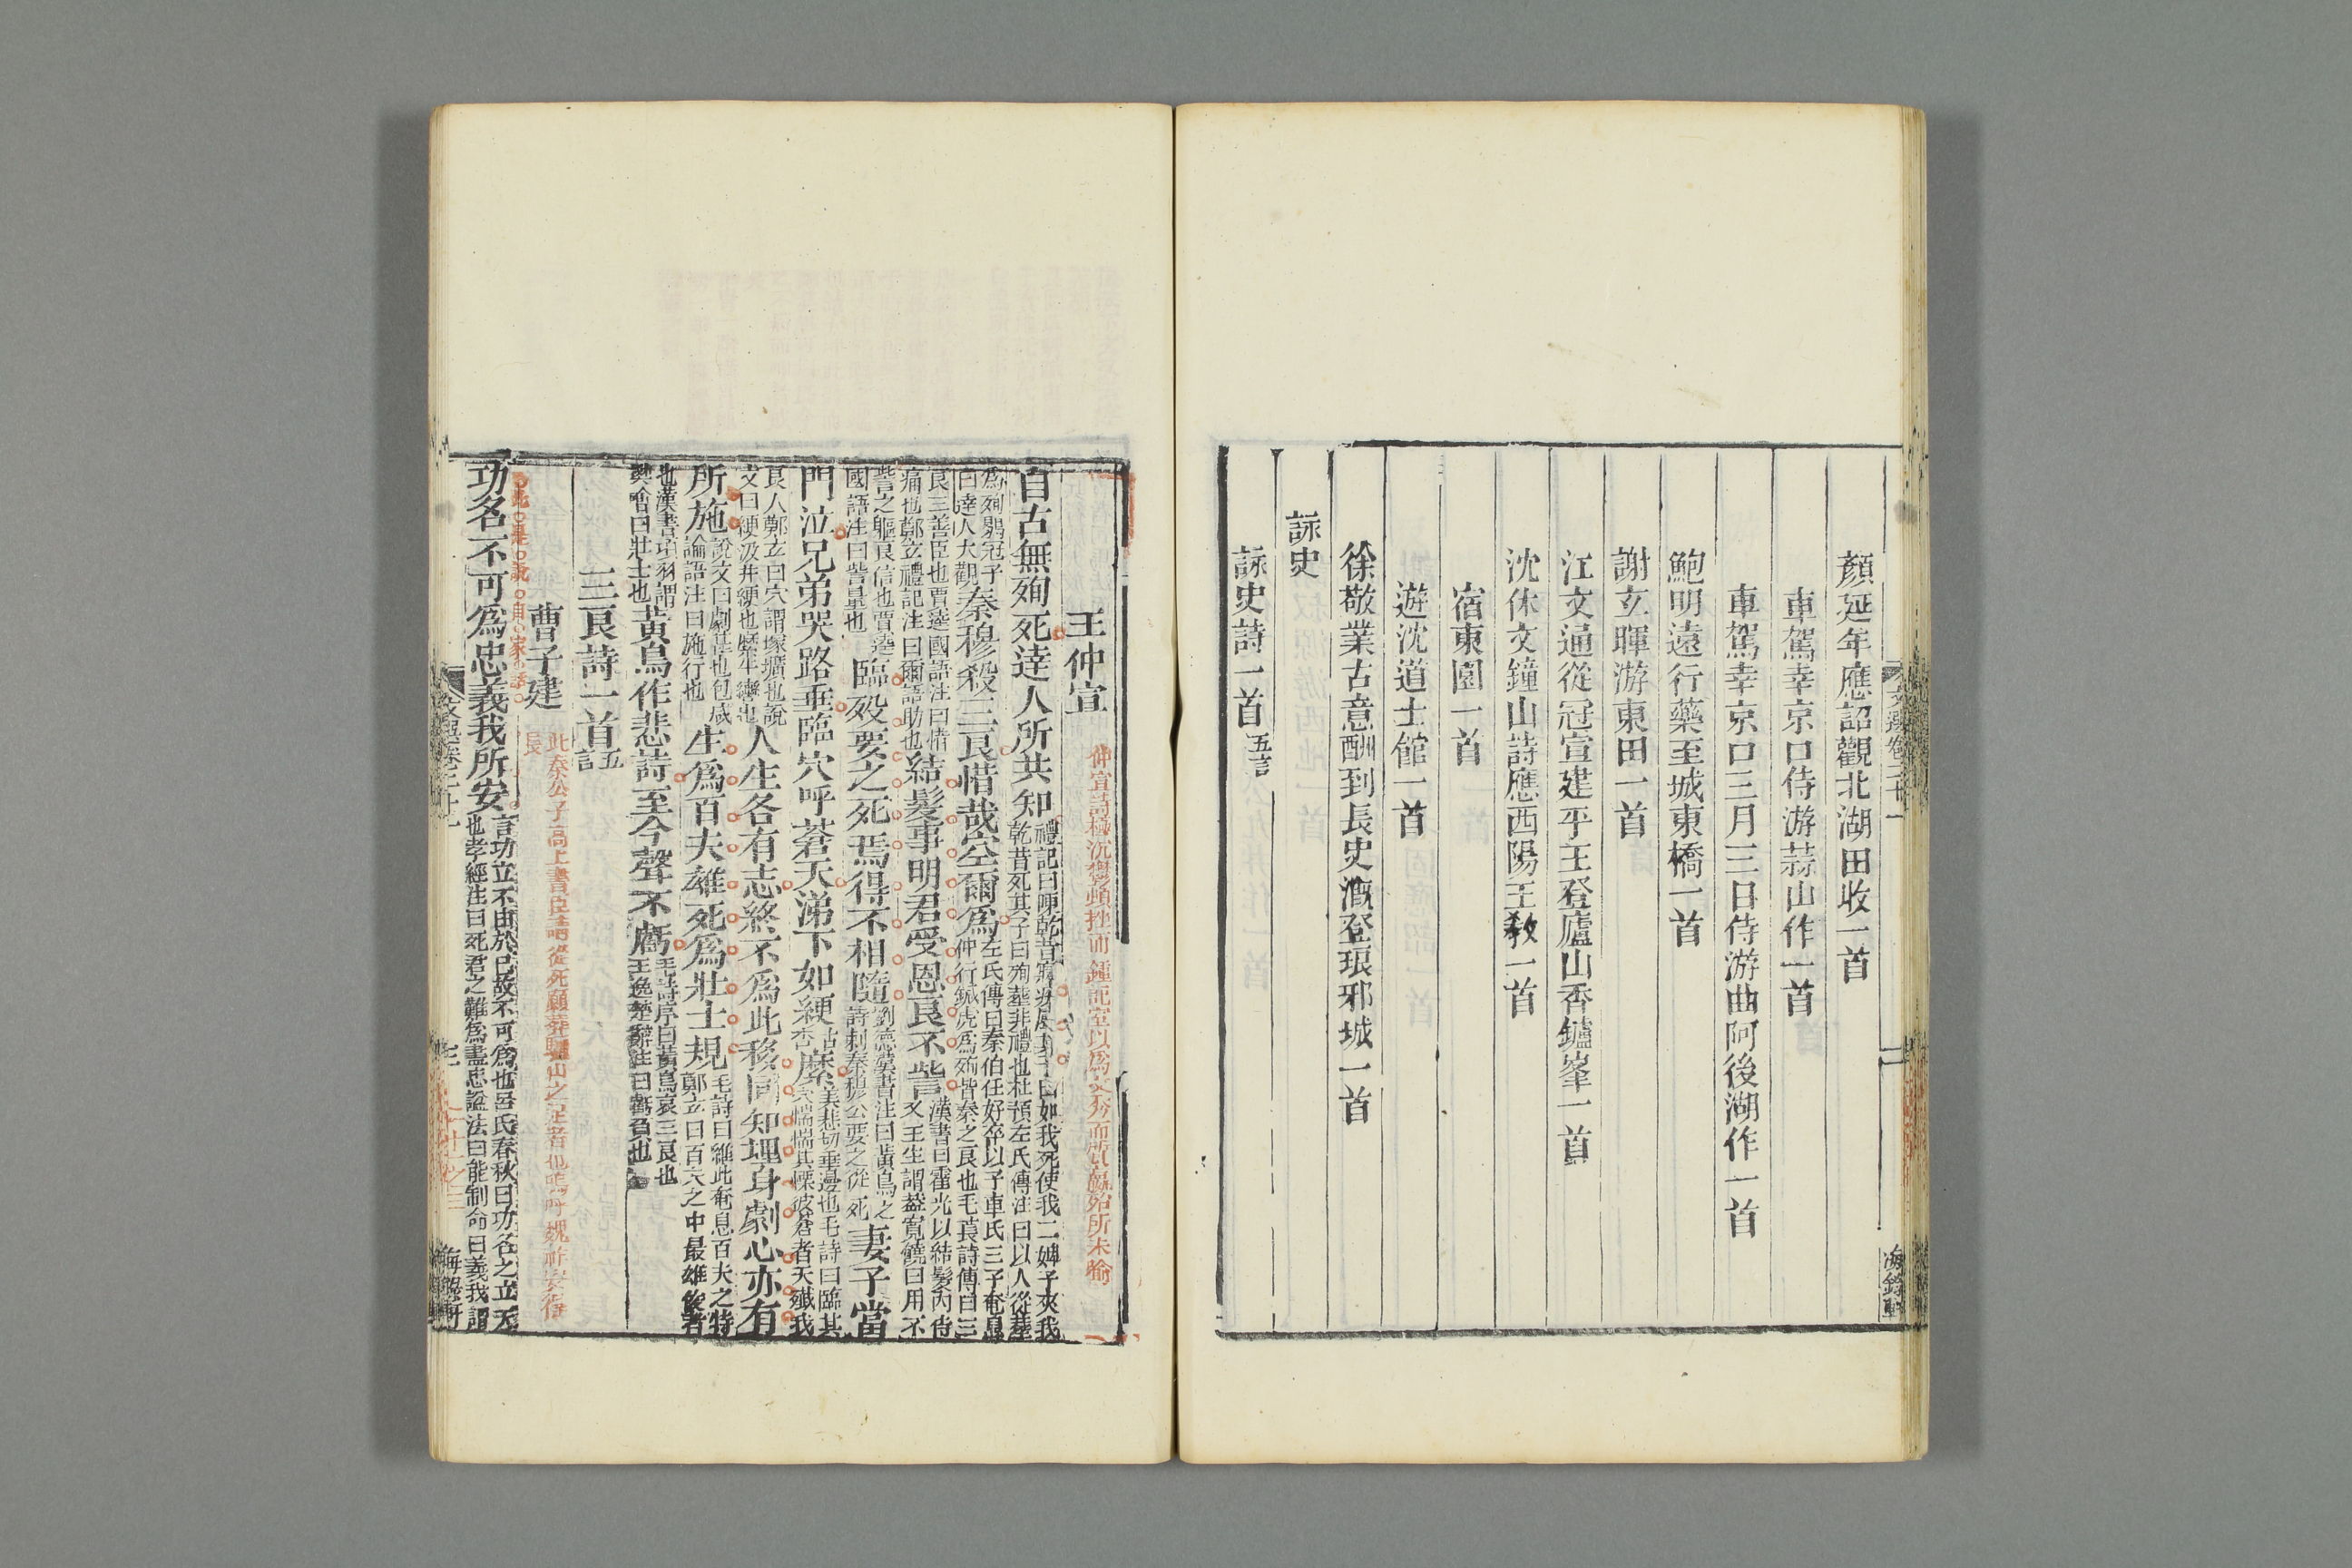 文選卷二十一
顏延年應詔觀北湖田收一首
車駕幸京口侍游蒜山作一首
車駕幸京口三月三日侍游曲阿後湖作一首
鮑明遠行藥至城東橋一首
謝玄暉游東田一首
江文通從冠宣建平王登廬山香鑪峯一首
沈休文鐘山詩應西陽王敎一首
宿東園一首
遊沈道士館一首
徐敬業古意酬到長史溉登琅邪城一首
詠史
詠史詩一首五言
王仲宣
自古無殉死達人所共知禮記曰陳乾昔寢疾屬其子曰如我死使我二婢子夾我
乾昔死其子曰殉葬非禮也杜預左氏傳注曰以人從葬
為殉鶡冠子
曰達人大觀秦穆殺三良惜哉空爾為左氏傳曰秦伯任好卒以子車氏三子奄息
仲行鍼虎為殉皆秦之良也毛萇詩傳曰三
良三善臣也賈逵國語注曰惜
痛也鄭玄禮記注曰爾語助也結髮事明君受恩良不訾漢書曰霍光以結髮內侍
又王生謂蓋寬饒曰用不
訾之軀良信也賈逵
國語注曰訾量也臨歿要之死焉得不相隨劉德漢書注曰黃鳥之
詩刺秦穆公要之從死妻子當
門泣兄弟哭路垂臨穴呼蒼天涕下如綆縻美悲切垂邊也毛詩曰臨其
穴惴惴其慄彼蒼者天殲我
良人鄭玄曰穴謂塚壙也說
文曰綆汲井綆也縻牛轡也人生各有志終不為此移同知埋身劇心亦有
所施說文曰劇甚也包咸
論語注曰施行也生為百夫雄死為壯士規毛詩曰維此奄息百夫之特
鄭玄曰百夫之中最雄俊者
也漢書項羽謂
樊噲曰壯士也黃鳥作悲詩至今聲不虧毛詩序曰黃鳥哀三良也
王逸楚辭注曰虧負也
三良詩一首五言
曹子建
此秦公子高上書臣請從死願葬驪山之足者也嗚呼魏祚安得
長
此是說自家話
功名不可為忠義我所安言功立不由於己故不可為也呂氏春秋曰功名之立天
也孝經注曰死君之難為盡忠諡法曰能制命曰義我謂
文選卷二十一
海錄軒